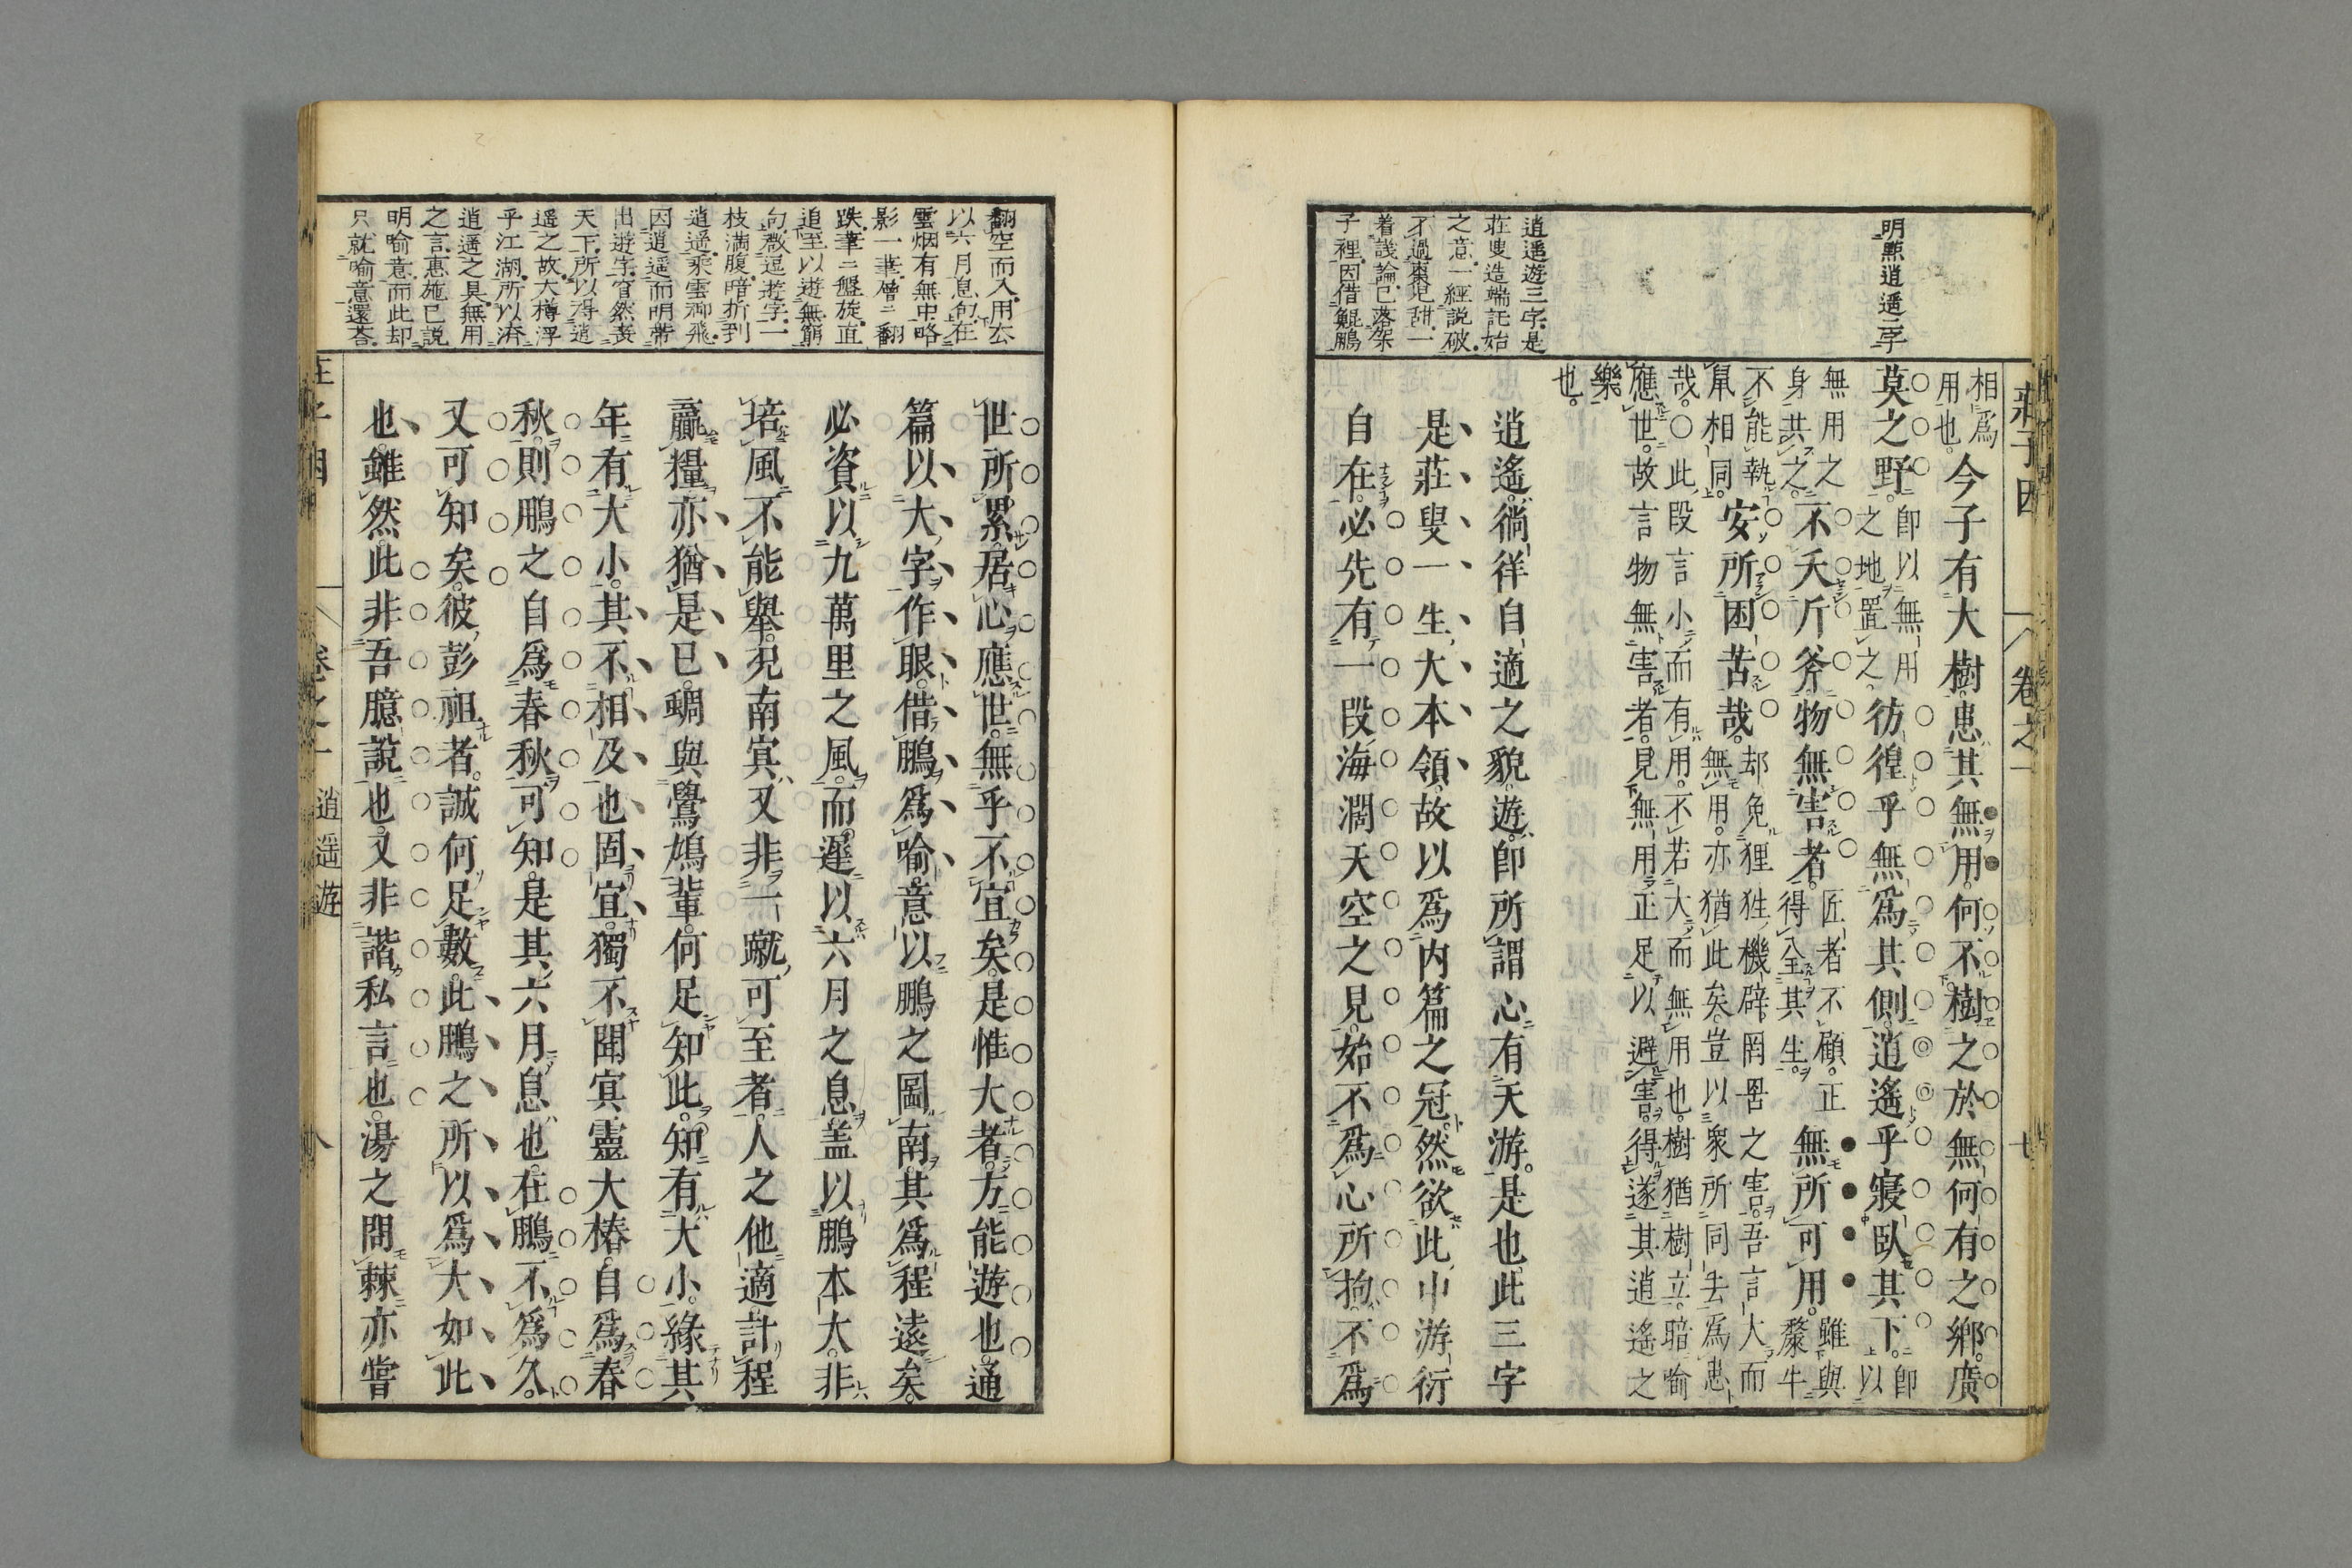 莊子因
卷之一
七
明點逍遥二字
逍遥遊三字是
莊叟造端託始
之意一經説破
不過棗兒甜一
着議論已落架
子裡因借鯤鵬
相爲
用也
今子有大樹患其無用何不樹之於無何有之鄉廣
莫之野
即以無用
之地置之
彷徨乎無爲其側逍遙乎寢臥其下
即以
無用之
身共之
不夭斤斧物無害者
匠者不顧正
得全其生
無所可用
雖與
犛牛
不能執
鼠相同
安所困苦哉
却免狸狌機辟罔罟之害吾言大而
無用亦猶此矣豈以衆所同去爲患
哉○此段言小而有用不若大而無用也樹猶樹立暗喻
應世故言物無害者見無用正足以避害得遂其逍遙之
樂
也
逍遙徜徉自適之貌遊即所謂心有天游是也此三字
是莊叟一生大本領故以爲内篇之冠然欲此中游衍
自在必先有一段海濶天空之見始不爲心所拘不爲
翻空而入用公
以六月息句在
雲烟有無中略
影一筆層二翻
跌筆二盤旋直
追至以遊無窮
句㪚逗遊字二
枝滿腹暗折到
逍遥乘雲御飛
因逍遥而明帶
出遊字窅然喪
天下所以得逍
遥之故大樽浮
乎江湖所以濟
逍遥之具無用
之言惠施已説
明喻意而此却
只就喻意還荅
世所累居心應世無乎不宜矣是惟大者方能遊也通
篇以大字作眼借鵬爲喻意以鵬之圖南其爲程遠矣
必資以九萬里之風而遲以六月之息盖以鵬本大非
培風不能舉況南冥又非一蹴可至者人之他適計程
贏糧亦猶是已蜩與鷽鳩輩何足知此知有大小緣其
年有大小其不相及也固宜獨不聞冥靈大椿自爲春
秋則鵬之自爲春秋可知是其六月息也在鵬不爲久
又可知矣彼彭祖者誠何足數此鵬之所以爲大如此
也雖然此非吾臆說也又非諧私言也湯之問棘亦嘗
卷之一
逍遥遊
八